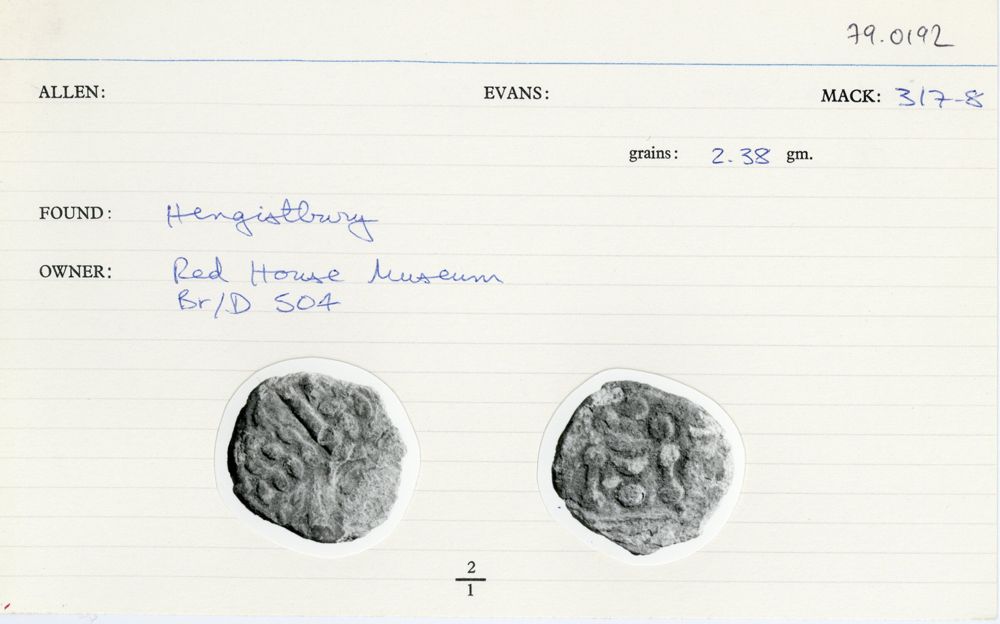 79.0192
ALLEN: EVANS: MACK: 317-8
grains: 2.38 gm.
FOUND: Hengistbury
OWNER: Red House Museum
Br/D 504
2
1